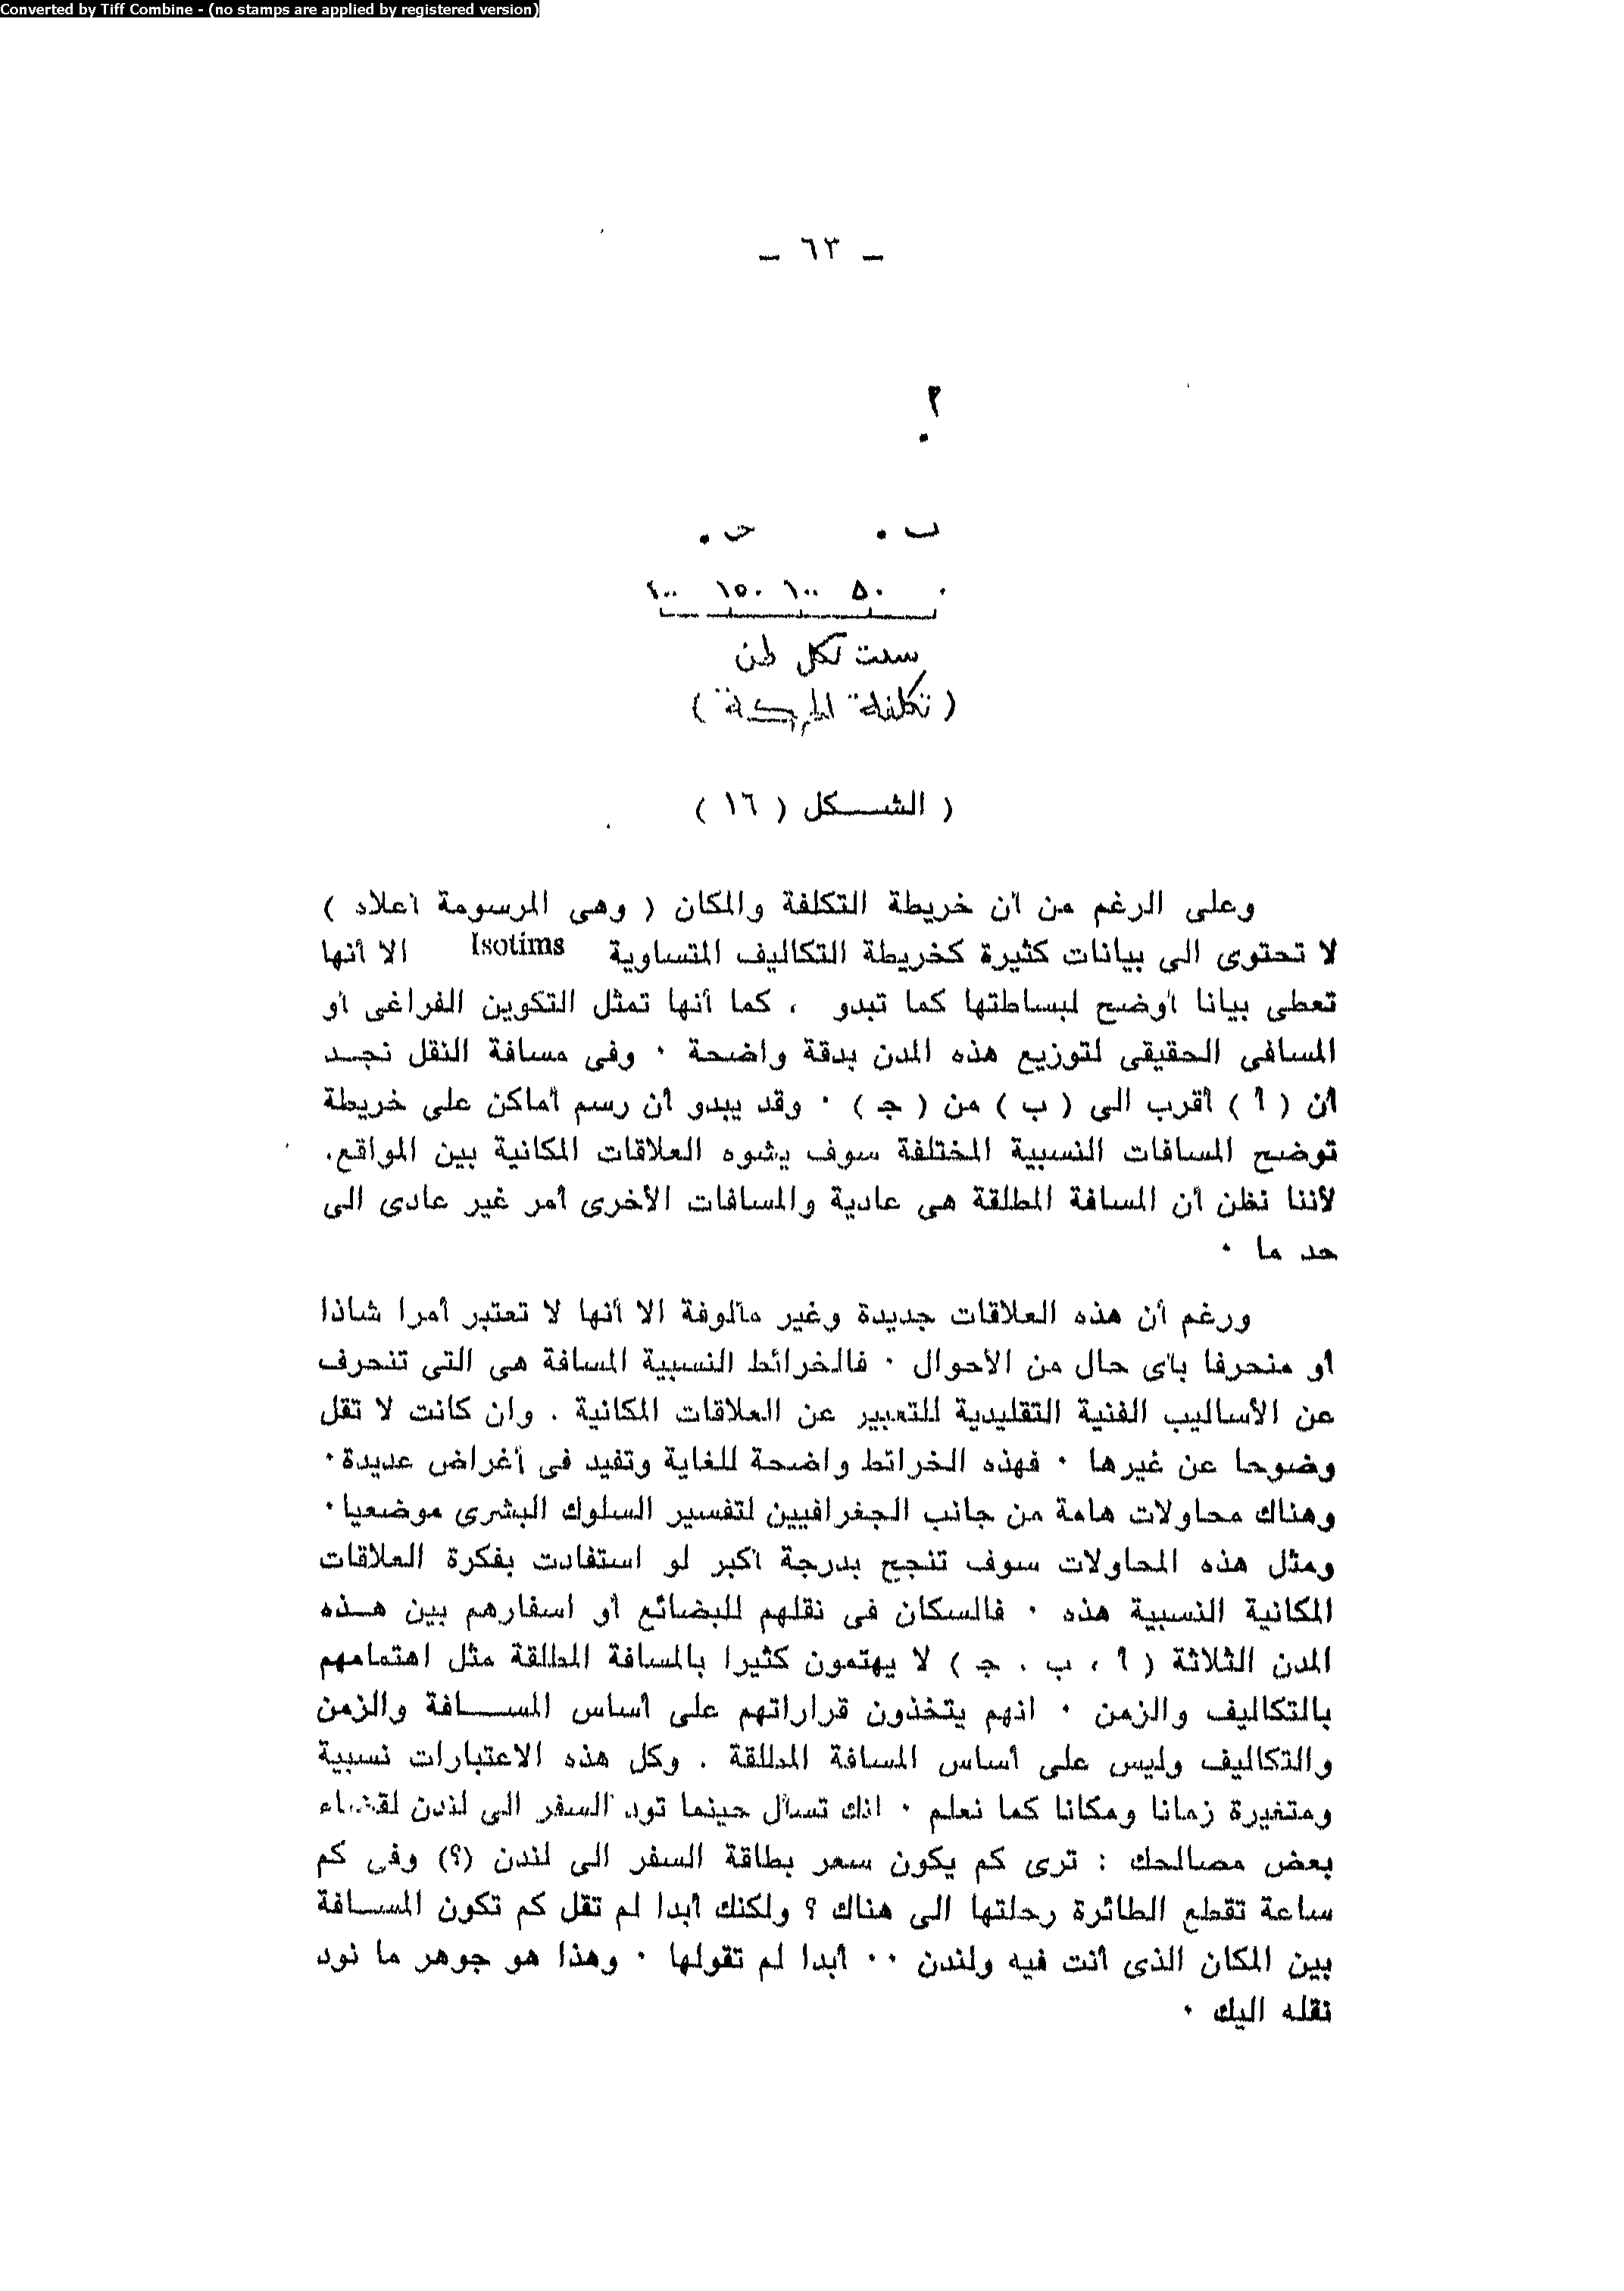 Converted by Tiff Combine - (no stamps are applied by registered version)
– ٦٣ –
أ
ب ج
٠ ٥٠ ١٠٠ ١٥٠ ٢٠٠
سنت لكل طن
( تكلفة الحركة )
( الشـــكل ( ١٦ )
وعلى الرغم من أن خريطة التكلفة والمكان ( وهى المرسومة أعلاه )
لا تحتوى الى بيانات كثيرة كخريطة التكاليف المتساوية Isotims الا أنها
تعطى بيانا أوضح لبساطتها كما تبدو ، كما أنها تمثل التكوين الفراغى أو
المسافى الحقيقى لتوزيع هذه المدن بدقة واضحة ٠ وفى مسافة النقل نجـد
أن ( أ ) أقرب الى ( ب ) من ( جـ ) ٠ وقد يبدو أن رسم أماكن على خريطة
توضح المسافات النسبية المختلفة سوف يشوه العلاقات المكانية بين المواقع.
لأننا نظن أن المسافة المطلقة هى عادية والمسافات الأخرى أمر غير عادى الى
حد ما ٠
ورغم أن هذه العلاقات جديدة وغير مألوفة الا أنها لا تعتبر أمرا شاذا
أو منحرفا بأى حال من الأحوال ٠ فالخرائط النسبية المسافة هى التى تنحرف
عن الأساليب الفنية التقليدية للتعبير عن العلاقات المكانية . وان كانت لا تقل
وضوحا عن غيرها ٠ فهذه الخرائط واضحة للغاية وتفيد فى أغراض عديدة٠
وهناك محاولات هامة من جانب الجغرافيين لتفسير السلوك البشرى موضعيا٠
ومثل هذه المحاولات سوف تنجح بدرجة أكبر لو استفادت بفكرة العلاقات
المكانية النسبية هذه ٠ فالسكان فى نقلهم للبضائع أو اسفارهم بين هـذه
المدن الثلاثة ( أ ، ب . جـ ) لا يهتمون كثيرا بالمسافة المطلقة مثل اهتمامهم
بالتكاليف والزمن ٠ انهم يتخذون قراراتهم على أساس المســافة والزمن
والتكاليف وليس على أساس المسافة المطلقة . وكل هذه الاعتبارات نسبية
ومتغيرة زمانا ومكانا كما نعلم ٠ انك تسأل حينما تود السفر الى لندن لقضاء
بعض مصالحك : ترى كم يكون سعر بطاقة السفر الى لندن (؟) وفى كم
ساعة تقطع الطائرة رحلتها الى هناك ؟ ولكنك أبدا لم تقل كم تكون المسـافة
بين المكان الذى أنت فيه ولندن ٠٠ أبدا لم تقولها ٠ وهذا هو جوهر ما نود
نقله اليك ٠